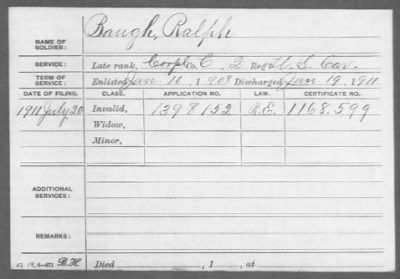 NAME OF SOLDIER: Baugh, Ralph
SERVICE: Late rank, Corpl Co. C, 2 Reg't U.S. Cav.
TERM OF SERVICE: Enlisted Jan. 18, 1908 Discharged Jan. 19, 1911
DATE OF FILING. CLASS. APPLICATION NO. LAW. CERTIFICATE NO.
1911 July 20 Invalid, 1398152 1168.599
Widow,
Minor,
ADDITIONAL SERVICES:
REMARKS:
B.H. Died , 1 , at